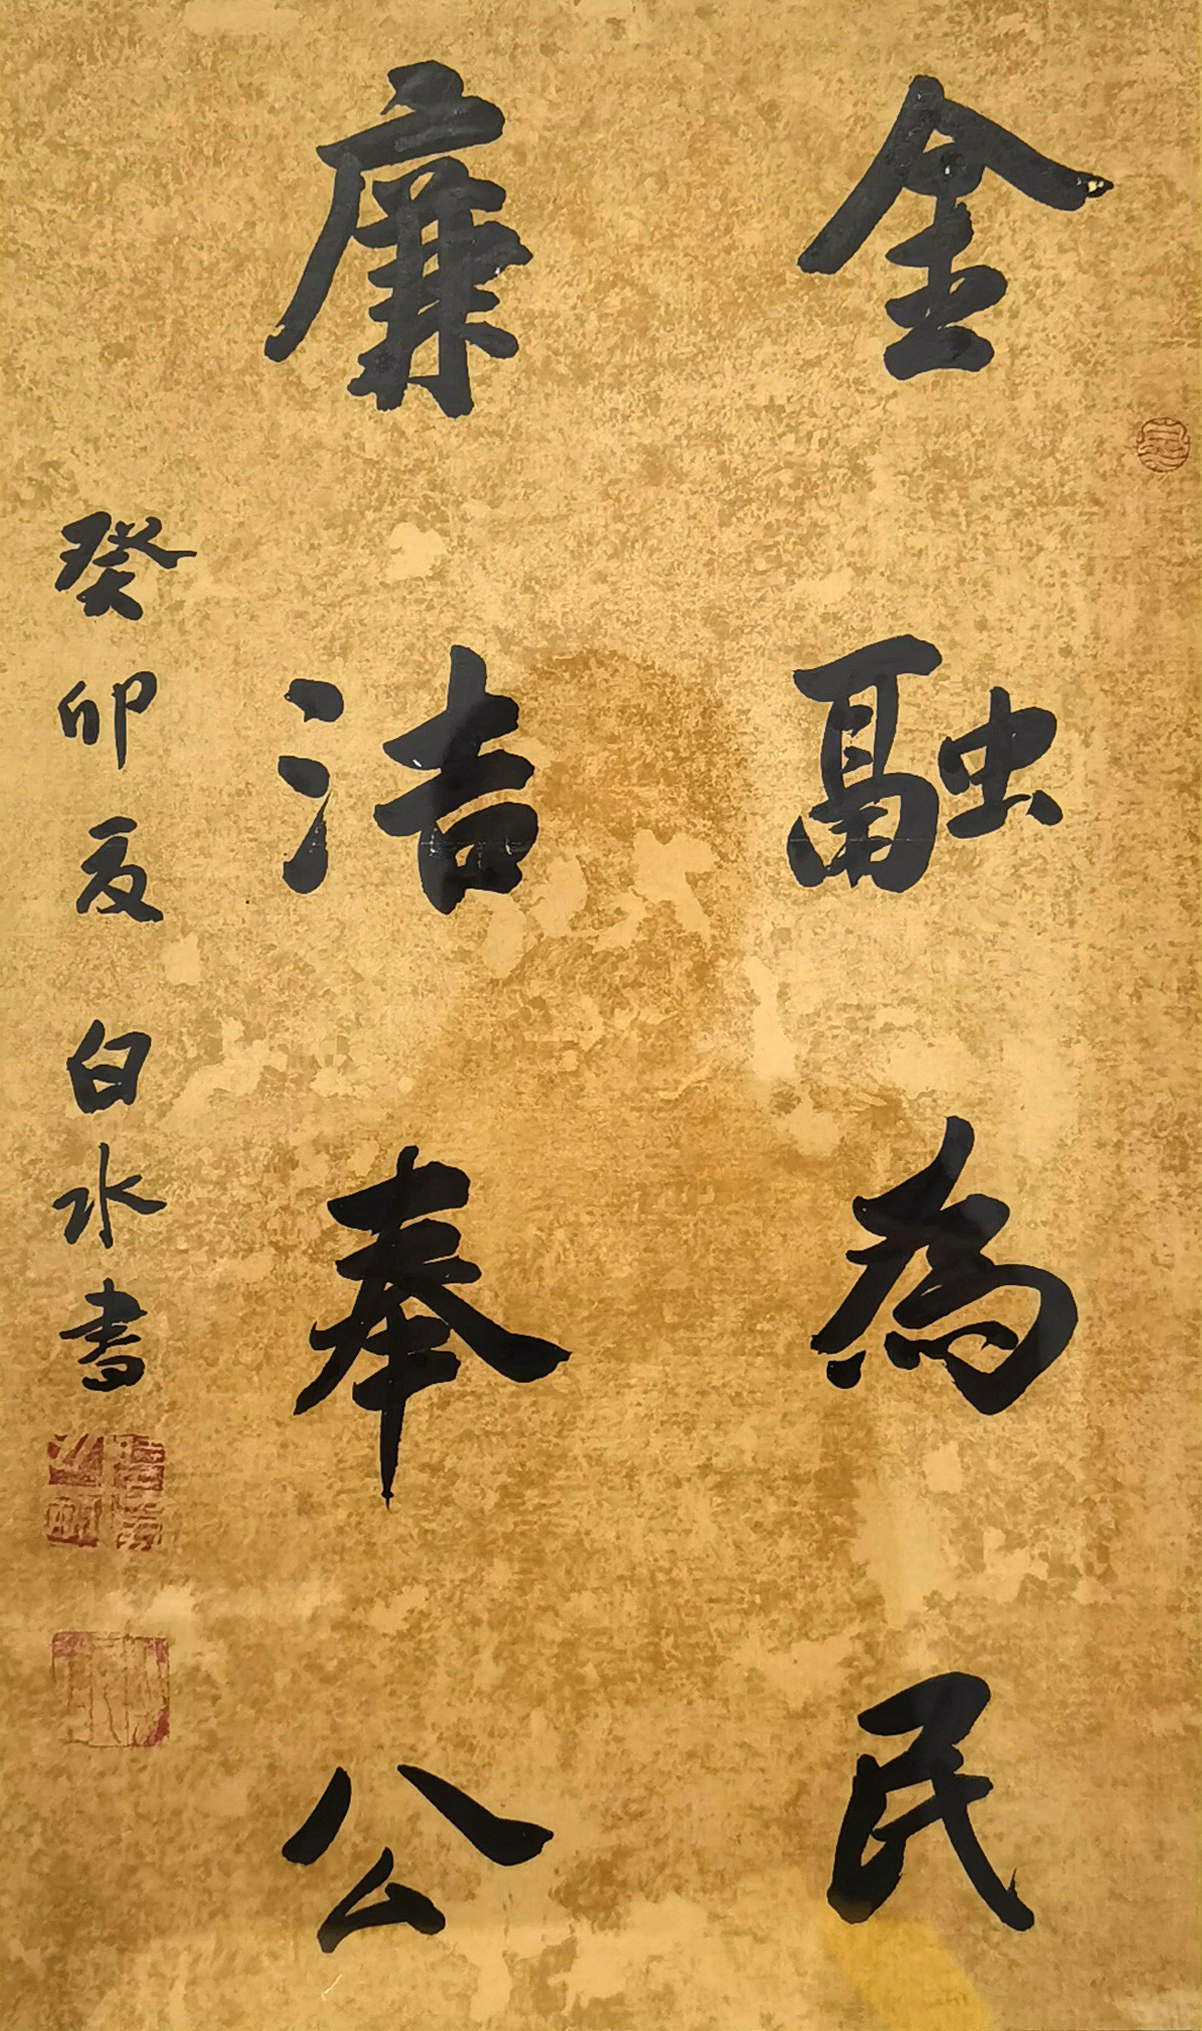 金融為民
廉洁奉公
癸卯夏白水書